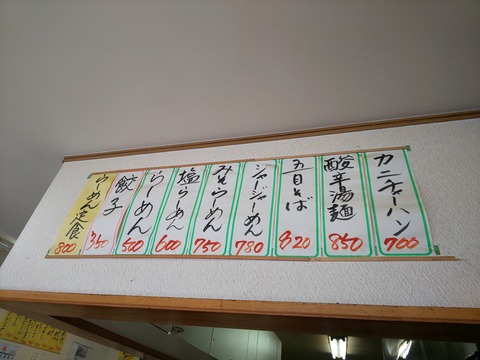 カニチャーハン
700
酸辛湯麺
850
五目そば
820
ジャージャーめん
780
みそらーめん
750
塩らーめん
600
らーめん
500
餃子
350
らーめん定食
800